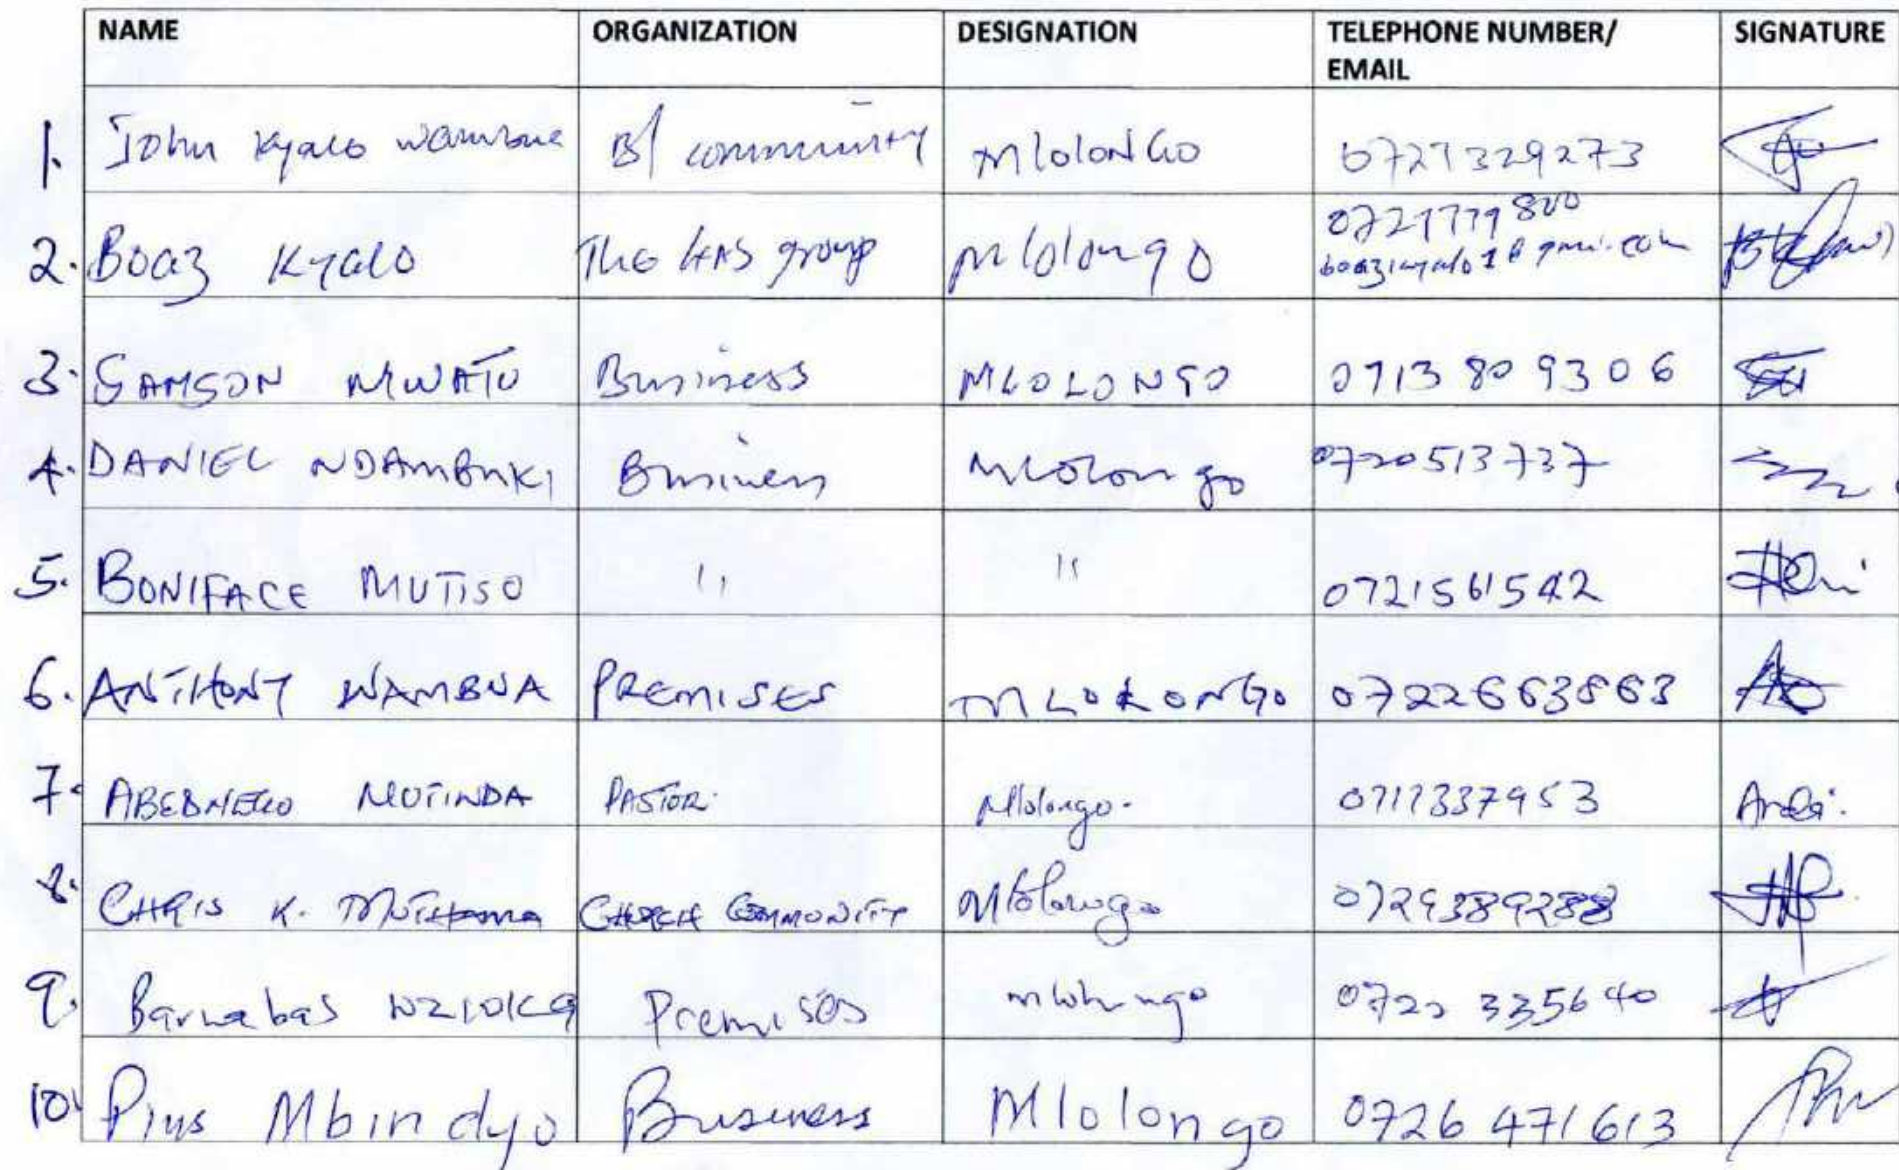 NAME ORGANIZATION DESIGNATION TELEPHONE NUMBER/ EMAIL SIGNATURE
1. John Kyalo Wambua B/ community MlolonGo 0727329273
2. Boaz Kyalo The group Mlolongo 0721779800
3. SAMSON MWATU Business MLOLONGO 0713 809306
4. DANIEL NDAMBUKI Business Mlolongo 0720513737
5. BONIFACE MUTISO " " 0721561542
6. ANTHONY WAMBUA PREMISES MLOLONGO 0722663863
7. ABEDNEGO MUTINDA PASTOR. Mlolongo. 0717337953
8. CHRIS K. MUTHAMA CHURCH COMMUNITY Mlolongo 0729389288
9. Barnabas NZIOKA Premises mlolongo 0722 335640
10. Pius Mbindyo Business Mlolongo 0726 471613